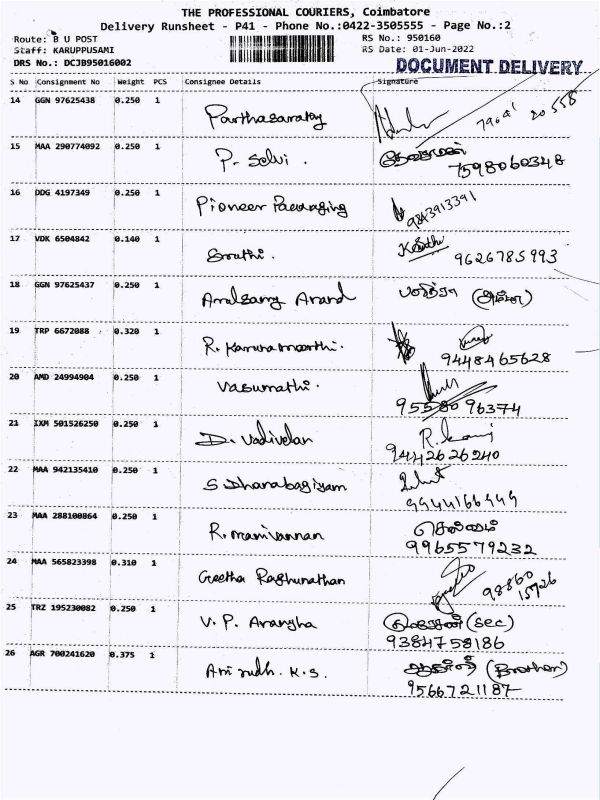 THE PROFESSIONAL COURIERS, Coimbatore
Delivery Runsheet - P41 - Phone No.:0422-3505555 - Page No.:2
Route: B U POST RS No.: 950160
Staff: KARUPPUSAMI RS Date: 01-Jun-2022
DRS No.: DCJB95016002 DOCUMENT DELIVERY
S No Consignment No Weight PCS Consignee Details Signature
14 GGN 97625438 0.250 1 Parthasarathy
15 MAA 290774092 0.250 1 P. Selvi.
7598060348
16 DDG 4197349 0.250 1 Pioneer Packaging 9843913391
17 VDK 6504842 0.140 1 Sruthi. 9626785993
18 GGN 97625437 0.250 1 Arulsamy Anand
19 TRP 6672088 0.320 1 R. Karunamoorthi.
9448465628
20 AMD 24994904 0.250 1 Vasumathi.
95580 96374
21 IXM 501526250 0.250 1 D. Vadivelan
9442626240
22 MAA 942135410 0.250 1 S Dhanabagiyam
9944166449
23 MAA 288100864 0.250 1 R. manivannan செல்வம்
9965579232
24 MAA 565823398 0.310 1 Geetha Raghunathan 98860
15926
25 TRZ 195230082 0.250 1 V. P. Aranjha (sec)
9384758186
26 AGR 700241620 0.375 1 Anirudh. K.S. (Brother)
9566721187